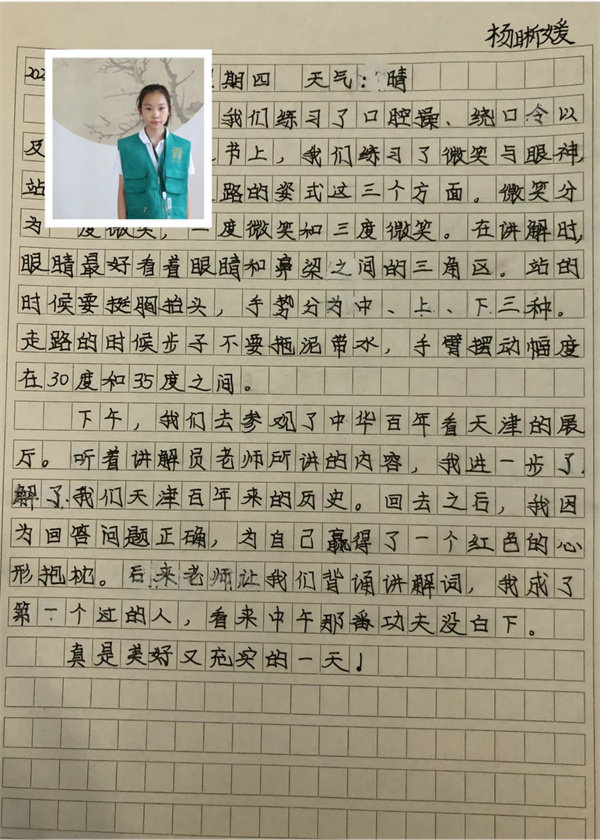 杨晰媛
202 期四 天气：晴
我们练习了口腔操、绕口令以
及 书上，我们练习了微笑与眼神，
站 路的姿式这三个方面。微笑分
为一度微笑，二度微笑和三度微笑。在讲解时，
眼睛最好看着眼睛和鼻梁之间的三角区。站的
时候要挺胸抬头，手势分为中、上、下三种。
走路的时候步子不要拖泥带水，手臂摆动幅度
在30度和35度之间。
下午，我们去参观了中华百年看天津的展
厅。听着讲解员老师所讲的内容，我进一步了
解了我们天津百年来的历史。回去之后，我因
为回答问题正确，为自己赢得了一个红色的心
形抱枕。后来老师让我们背诵讲解词，我成了
第一个过的人，看来中午那番功夫没白下。
真是美好又充实的一天！